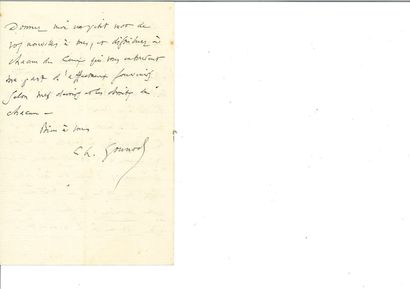 Donnez moi un petit mot de
vos nouvelles à tous, et distribuez à
chacun de ceux qui vous entourent
ma part d'affectueux souvenirs
selon mes devoirs et les droits de
chacun —
Bien à vous
Ch. Gounod